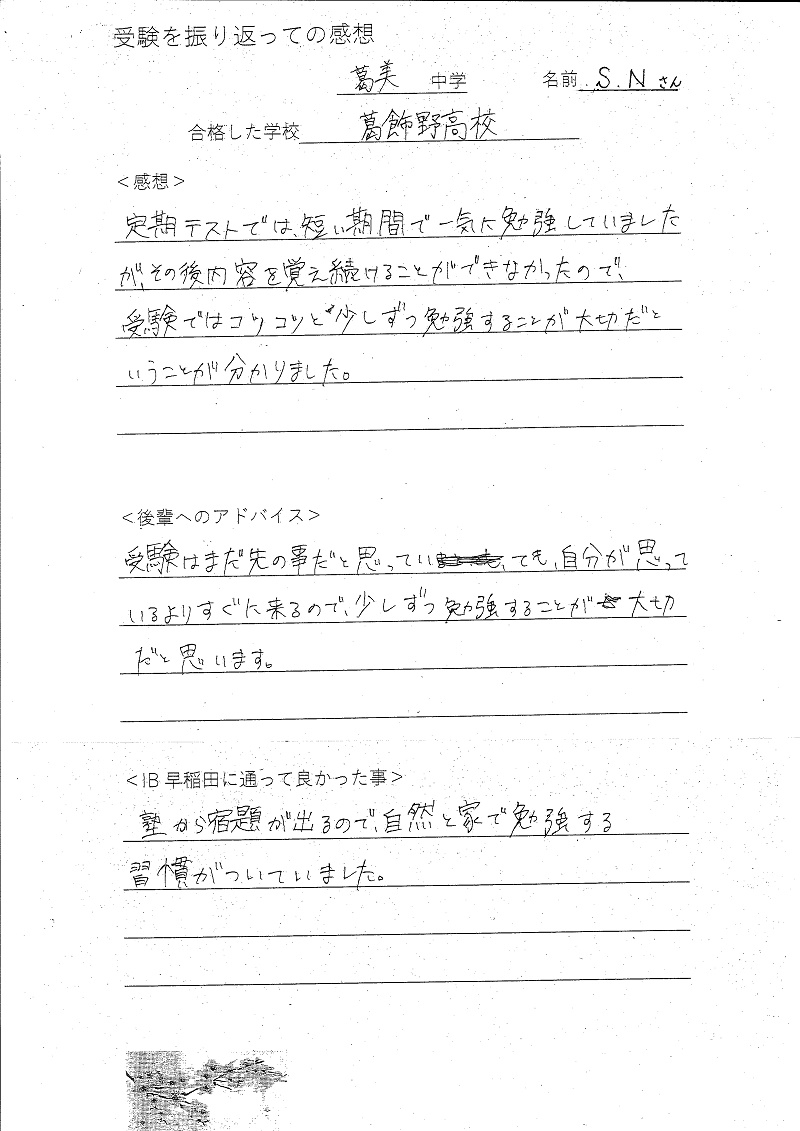 受験を振り返っての感想
葛美 中学 名前 S.Nさん
合格した学校 葛飾野高校
<感想>
定期テストでは、短い期間で一気に勉強していました
が、その後内容を覚え続けることができなかったので、
受験ではコツコツと少しずつ勉強することが大切だと
いうことが分かりました。
<後輩へのアドバイス>
受験はまだ先の事だと思ってい ても、自分が思って
いるよりすぐに来るので、少しずつ勉強することが大切
だと思います。
<IB早稲田に通って良かった事>
塾から宿題が出るので、自然と家で勉強する
習慣がついていました。